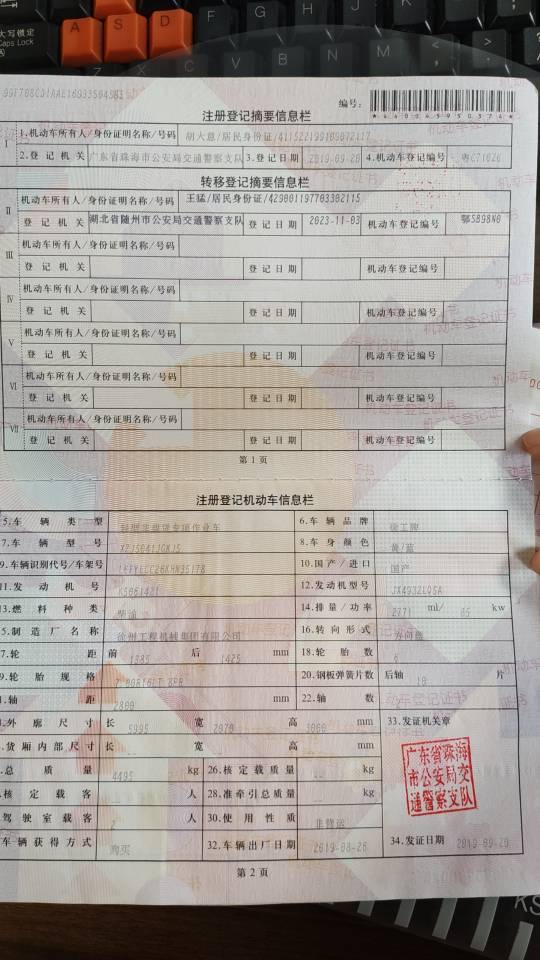 大写锁定
Caps Lock
A
S
D
F
G
H
J
K
X
C
V
B
N
M
编号:
*440045950374*
注册登记摘要信息栏
I
1.机动车所有人/身份证明名称/号码
胡大意/居民身份证/411522199109072417
2.登记机关
广东省珠海市公安局交通警察支队
3.登记日期
2019-09-20
4.机动车登记编号
粤C71026
转移登记摘要信息栏
II
机动车所有人/身份证明名称/号码
王猛/居民身份证/429001197703302115
登记机关
湖北省随州市公安局交通警察支队
登记日期
2023-11-03
机动车登记编号
鄂SB98N0
III
机动车所有人/身份证明名称/号码
登记机关
登记日期
机动车登记编号
IV
机动车所有人/身份证明名称/号码
登记机关
登记日期
机动车登记编号
V
机动车所有人/身份证明名称/号码
登记机关
登记日期
机动车登记编号
VI
机动车所有人/身份证明名称/号码
登记机关
登记日期
机动车登记编号
VII
机动车所有人/身份证明名称/号码
登记机关
登记日期
机动车登记编号
第1页
注册登记机动车信息栏
5.车辆类型
轻型非载货专项作业车
6.车辆品牌
徐工牌
7.车辆型号
XZJ5041JGKJ5
8.车身颜色
黄/蓝
9.车辆识别代号/车架号
10.国产/进口
国产
11.发动机号
K5061421
12.发动机型号
JX493ZLQ5A
13.燃料种类
柴油
14.排量/功率
2771 ml/ 85 kw
15.制造厂名称
徐州工程机械集团有限公司
16.转向形式
方向盘
17.轮距
前 1385 后 1425 mm
18.轮胎数
6
19.轮胎规格
7.00R16LT 8PR
20.钢板弹簧片数
后轴 10 片
轴距
2800 mm
22.轴数
外廓尺寸
长 5995 宽 2070 高 3060 mm
33.发证机关章
货厢内部尺寸
长 宽 高 mm
广东省珠海
市公安局交
通警察支队
总质量
4495 kg
26.核定载质量
-- kg
核定载客
人
28.准牵引总质量
-- kg
驾驶室载客
2 人
30.使用性质
非营运
车辆获得方式
购买
32.车辆出厂日期
2019-08-26
34.发证日期
2019-09-20
第2页